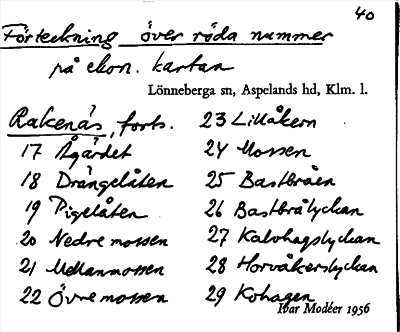 40
Förteckning över röda nummer
på ekon. kartan
Lönneberga sn, Aspelands hd, Klm. l.
Rakenäs, forts.
17 Ågärdet
18 Drängelåten
19 Pigelåten
20 Nedre mossen
21 Mellanmossen
22 Övre mossen
23 Lillåkern
24 Mossen
25 Bastbråen
26 Bastbrålyckan
27 Kalvhagslyckan
28 Horvåkerslyckan
29 Kohagen
Ivar Modéer 1956